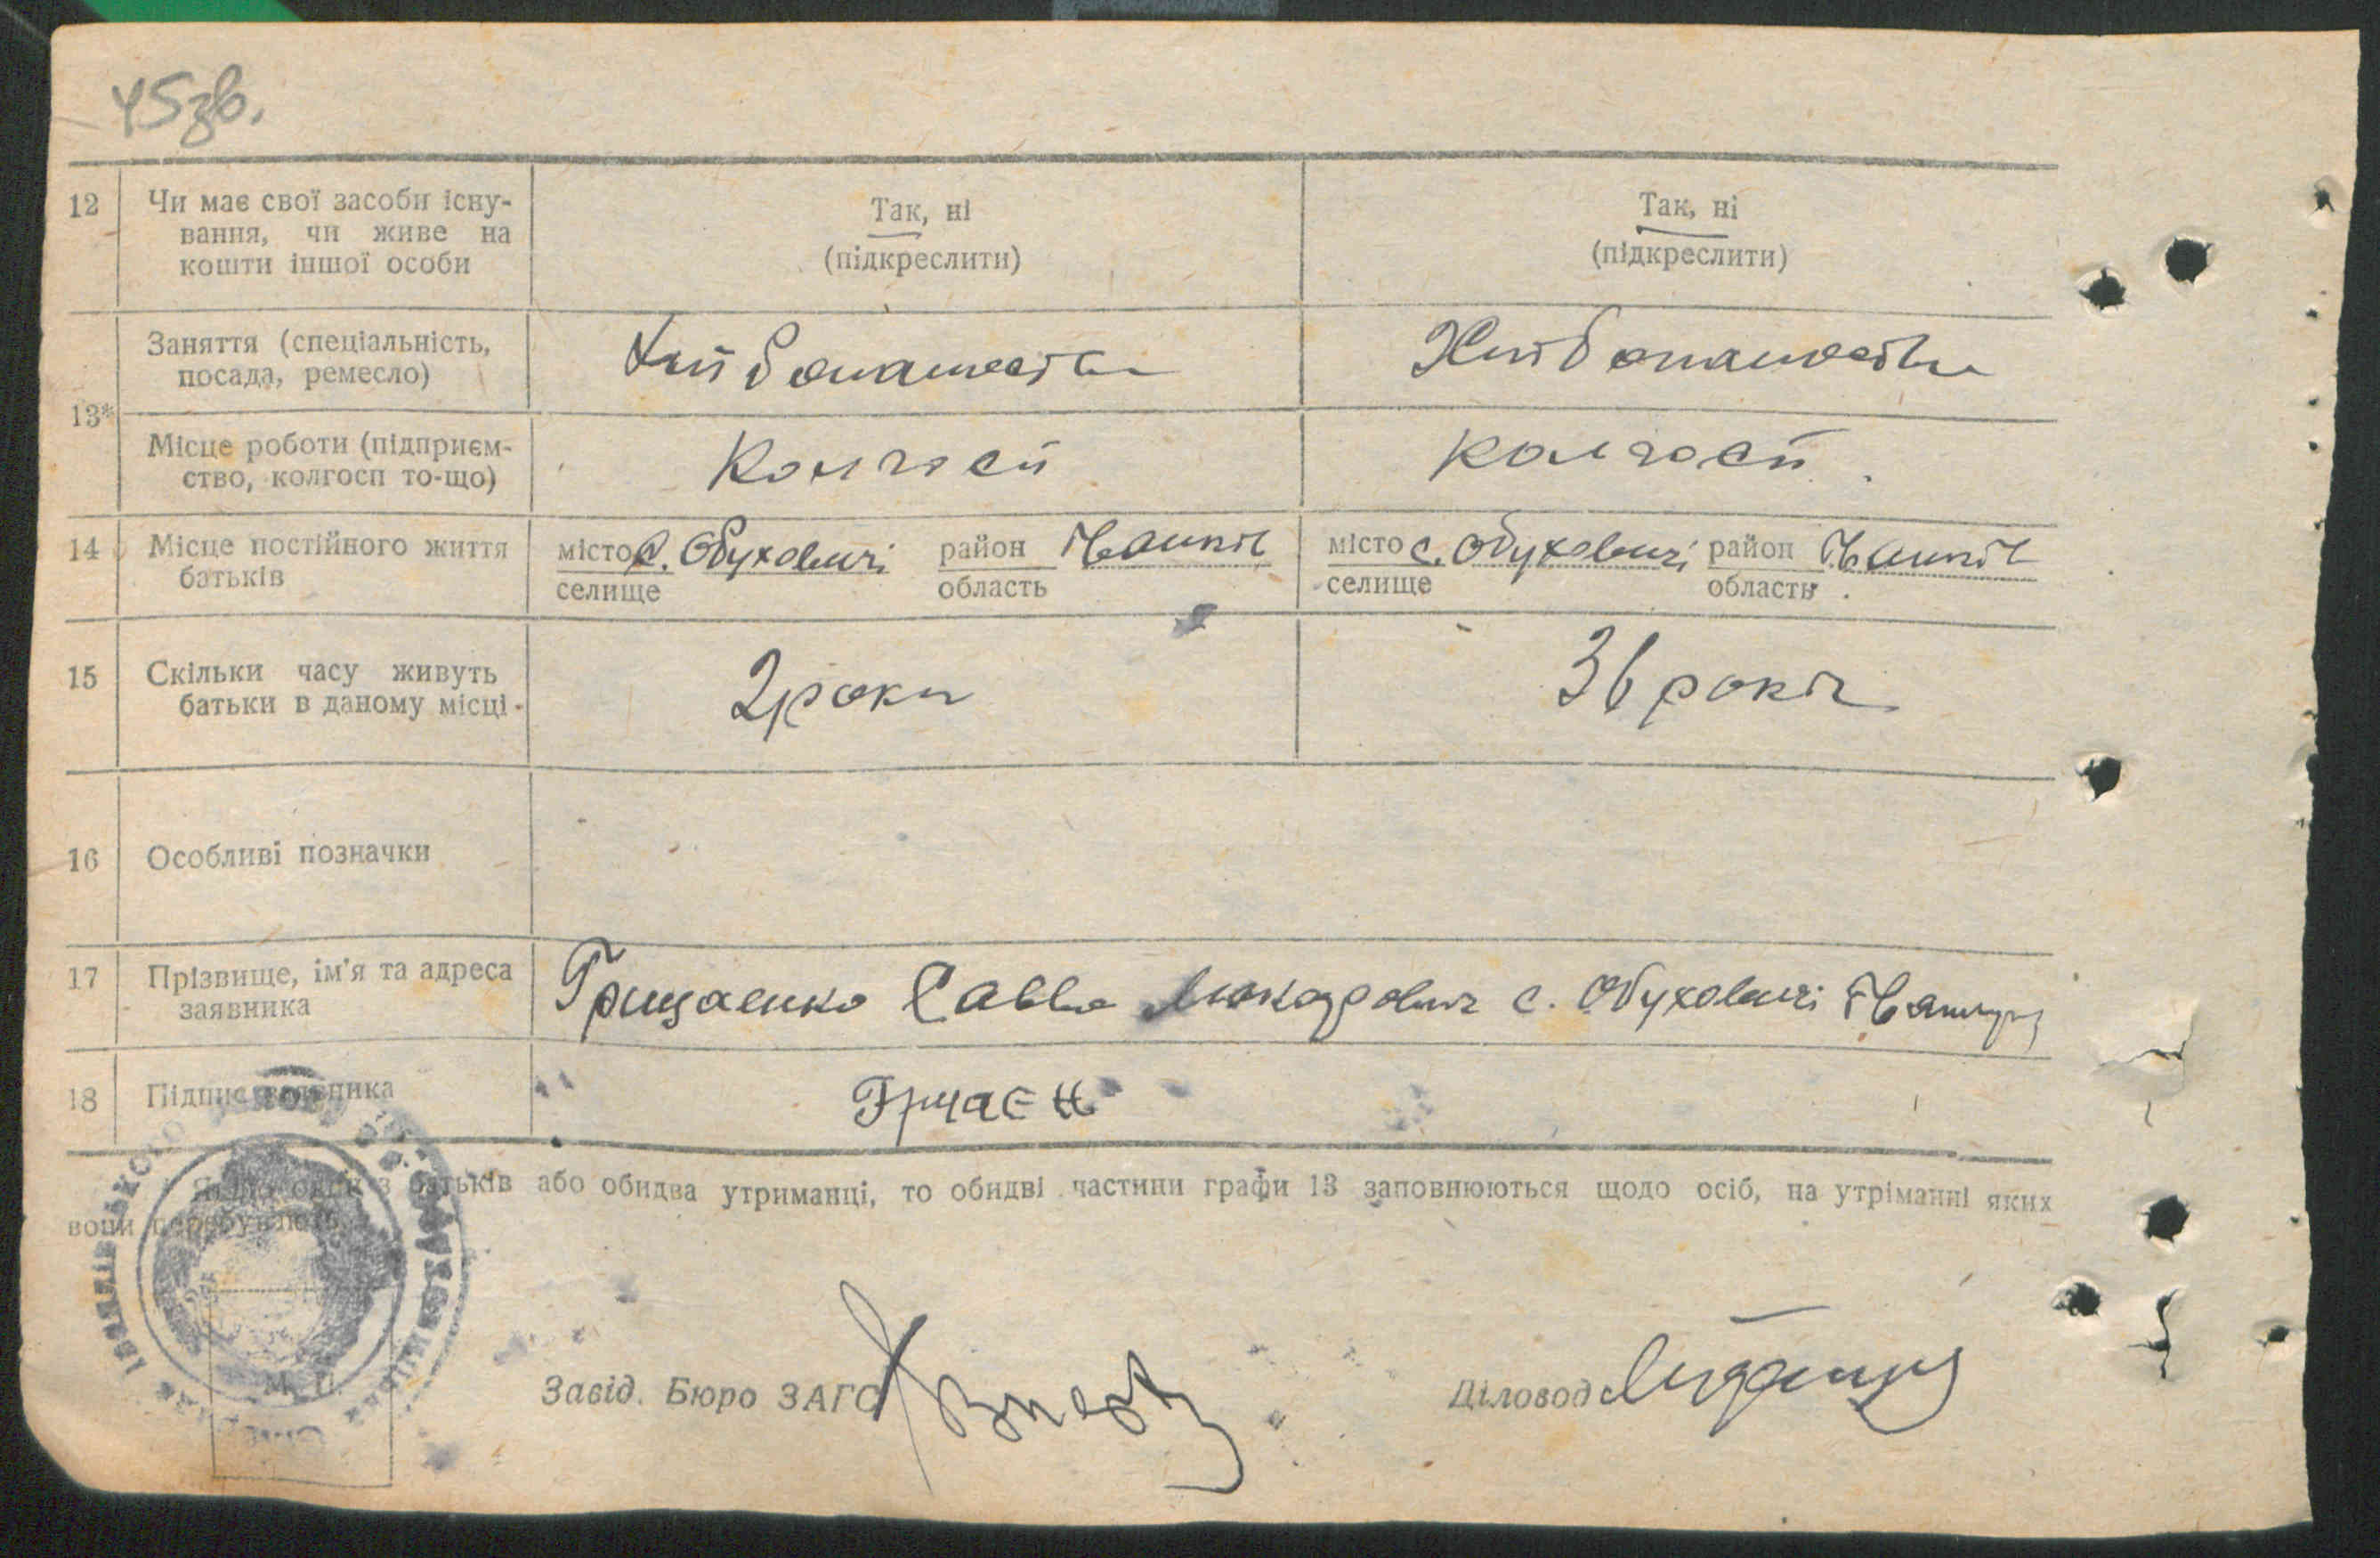 45зв.
12 Чи має свої засоби існу-
вання, чи живе на
кошти іншої особи
Так, ні
(підкреслити)
Так, ні
(підкреслити)
13*
Заняття (спеціальність,
посада, ремесло)
Хлібопашество
Хлібопашество
Місце роботи (підприєм-
ство, колгосп то-що)
Колгосп
Колгосп
14 Місце постійного життя
батьків
місто с. Обуховичі район
селище область
місто с. Обуховичі район
селище область
15 Скільки часу живуть
батьки в даному місці
2 роки
36 років
16 Особливі позначки
17 Прізвище, ім'я та адреса
заявника
Грищаенко Савва с. Обуховичі
18 Підпис заявника
* Якщо один з батьків або обидва утриманці, то обидві частини графи 13 заповнюються щодо осіб, на утріманні яких
вони перебувають.
М. П.
Завід. Бюро ЗАГС
Діловод